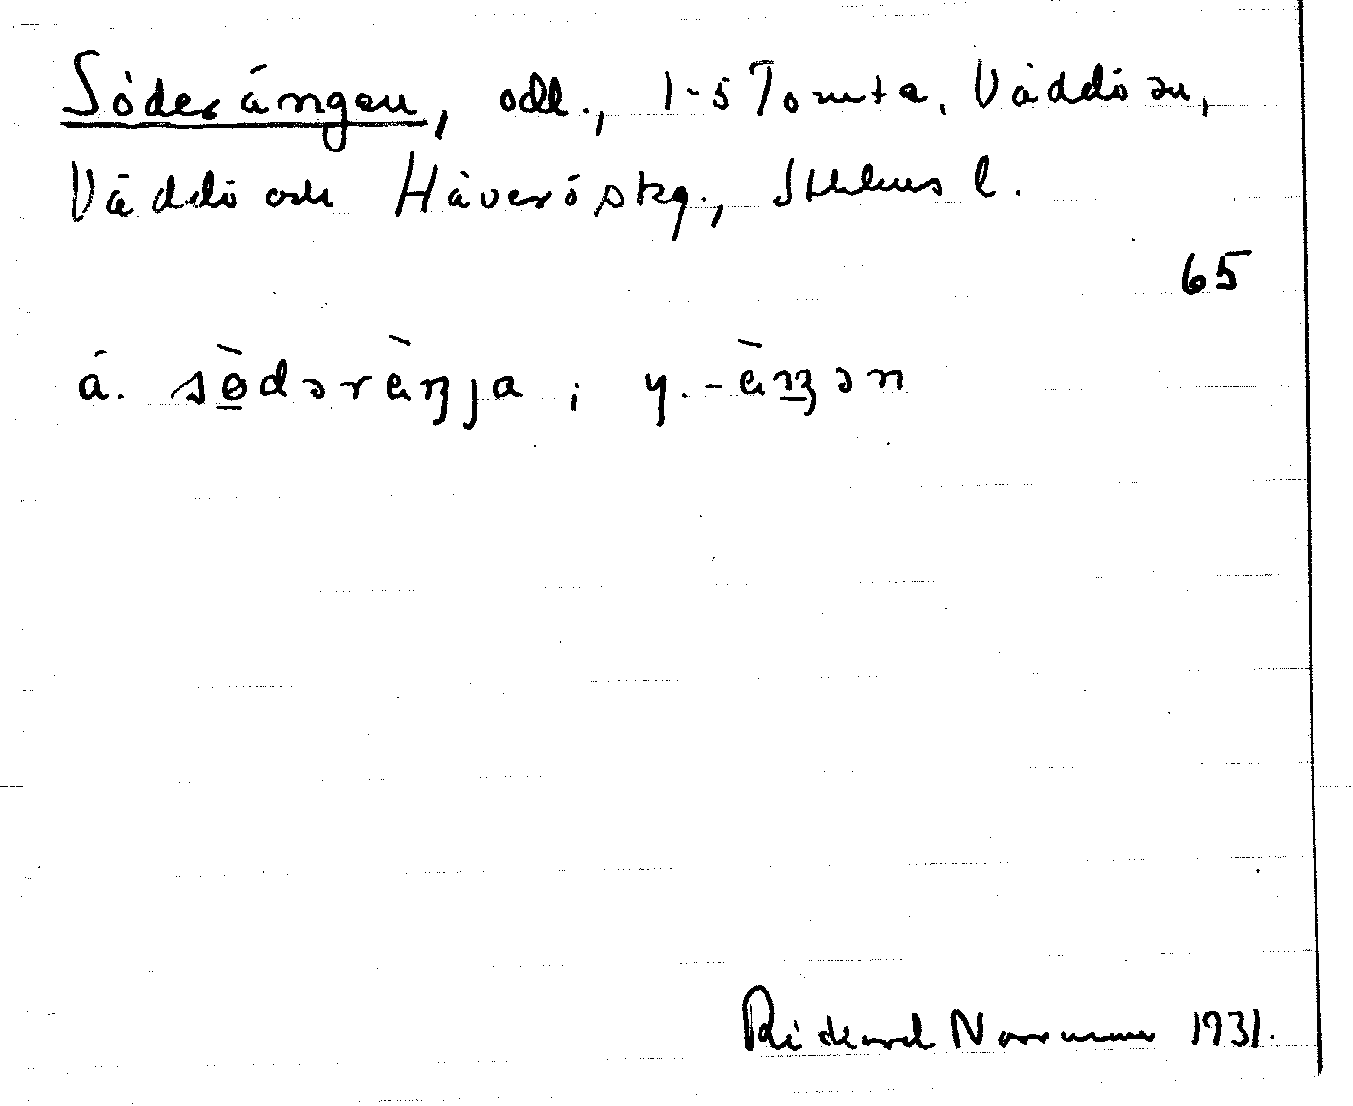 Söderängen, odl., 1-5 Tomta, Väddö sn,
Väddö och Häverö skg., Sthlms l.
65
ä. sö̀dərä̀ŋja ; y. -ä̀ŋən
Rickard Norrman 1931.